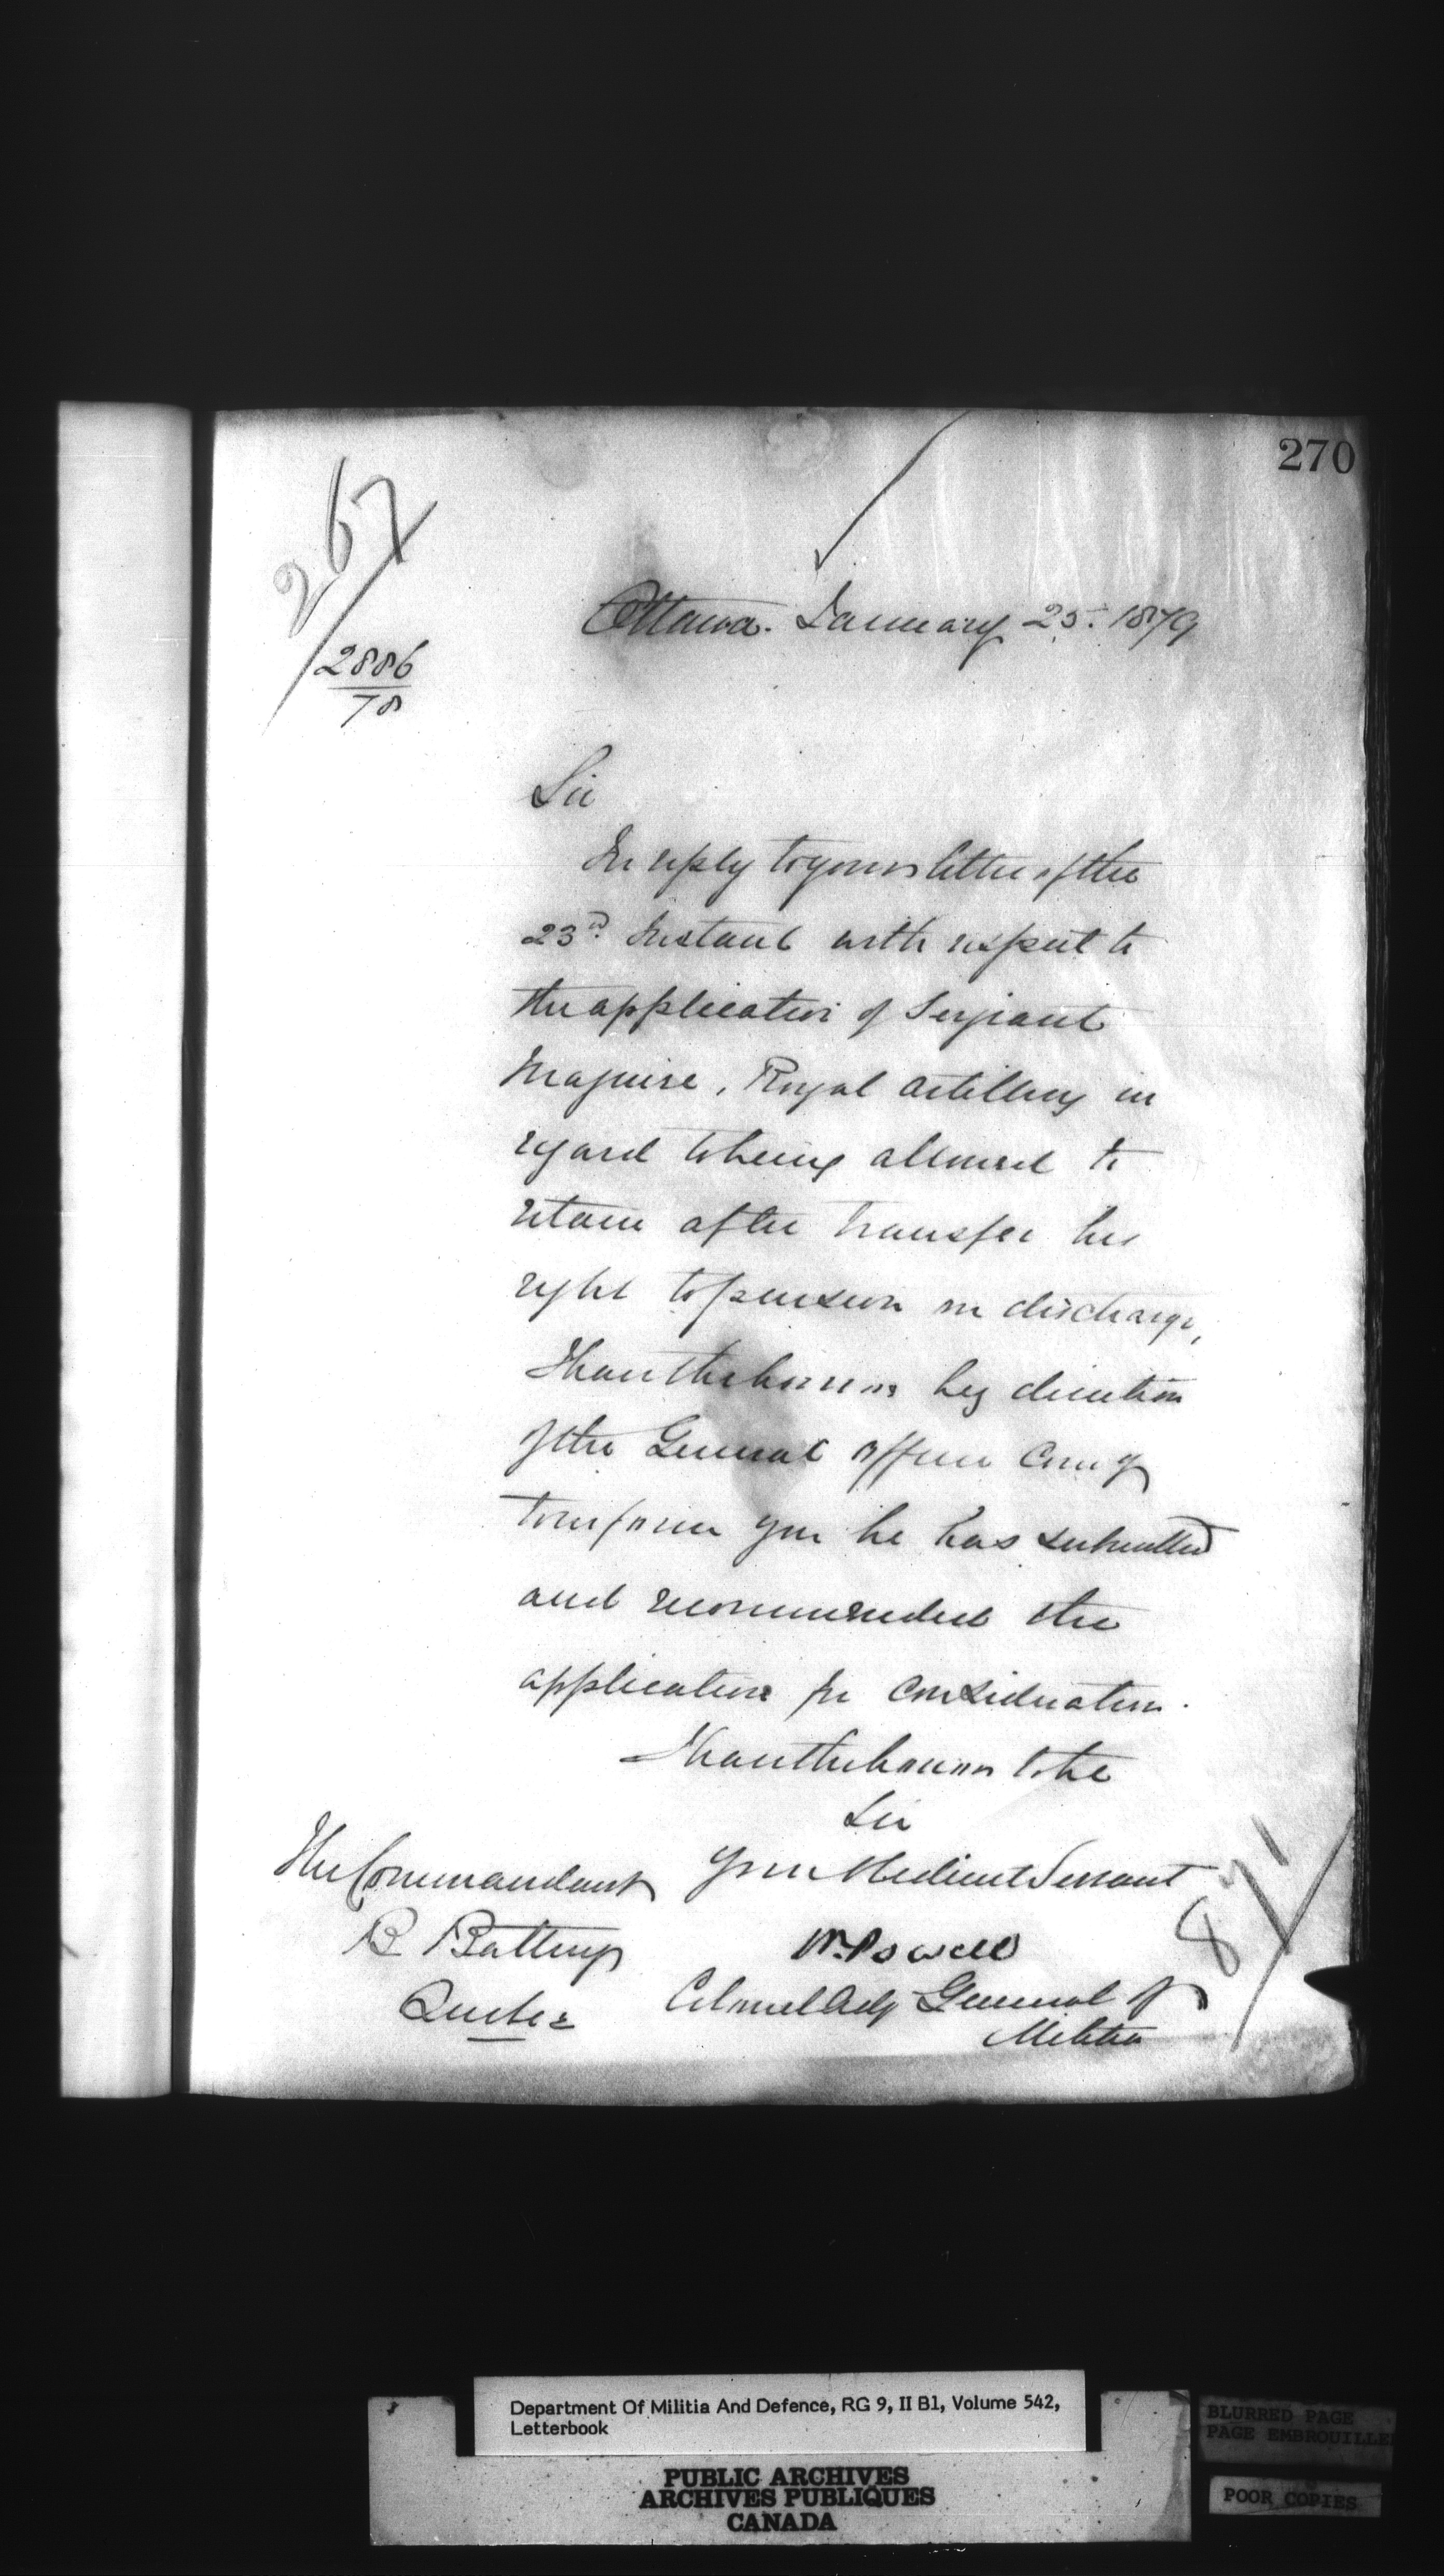 270
267
2886
78
Ottawa. January 25. 1879
Sir
In reply to your letter of the
23rd Instant with respect to
the application of Serjeant
Maguire, Royal Artillery in
regard to being allowed to
retain after transfer his
right to pension on discharge,
I have the honor by direction
of the General Officer Comg
to inform you he has submitted
and recommended the
application for consideration.
I have the honor to be
Sir
Your Obedient Servant
W. Powell
Colonel Adj General of
Militia
The Commandant
B Battery
Quebec
Department Of Militia And Defence, RG 9, II B1, Volume 542,
Letterbook
PUBLIC ARCHIVES
ARCHIVES PUBLIQUES
CANADA
BLURRED PAGE
PAGE EMBROUILLEE
POOR COPIES